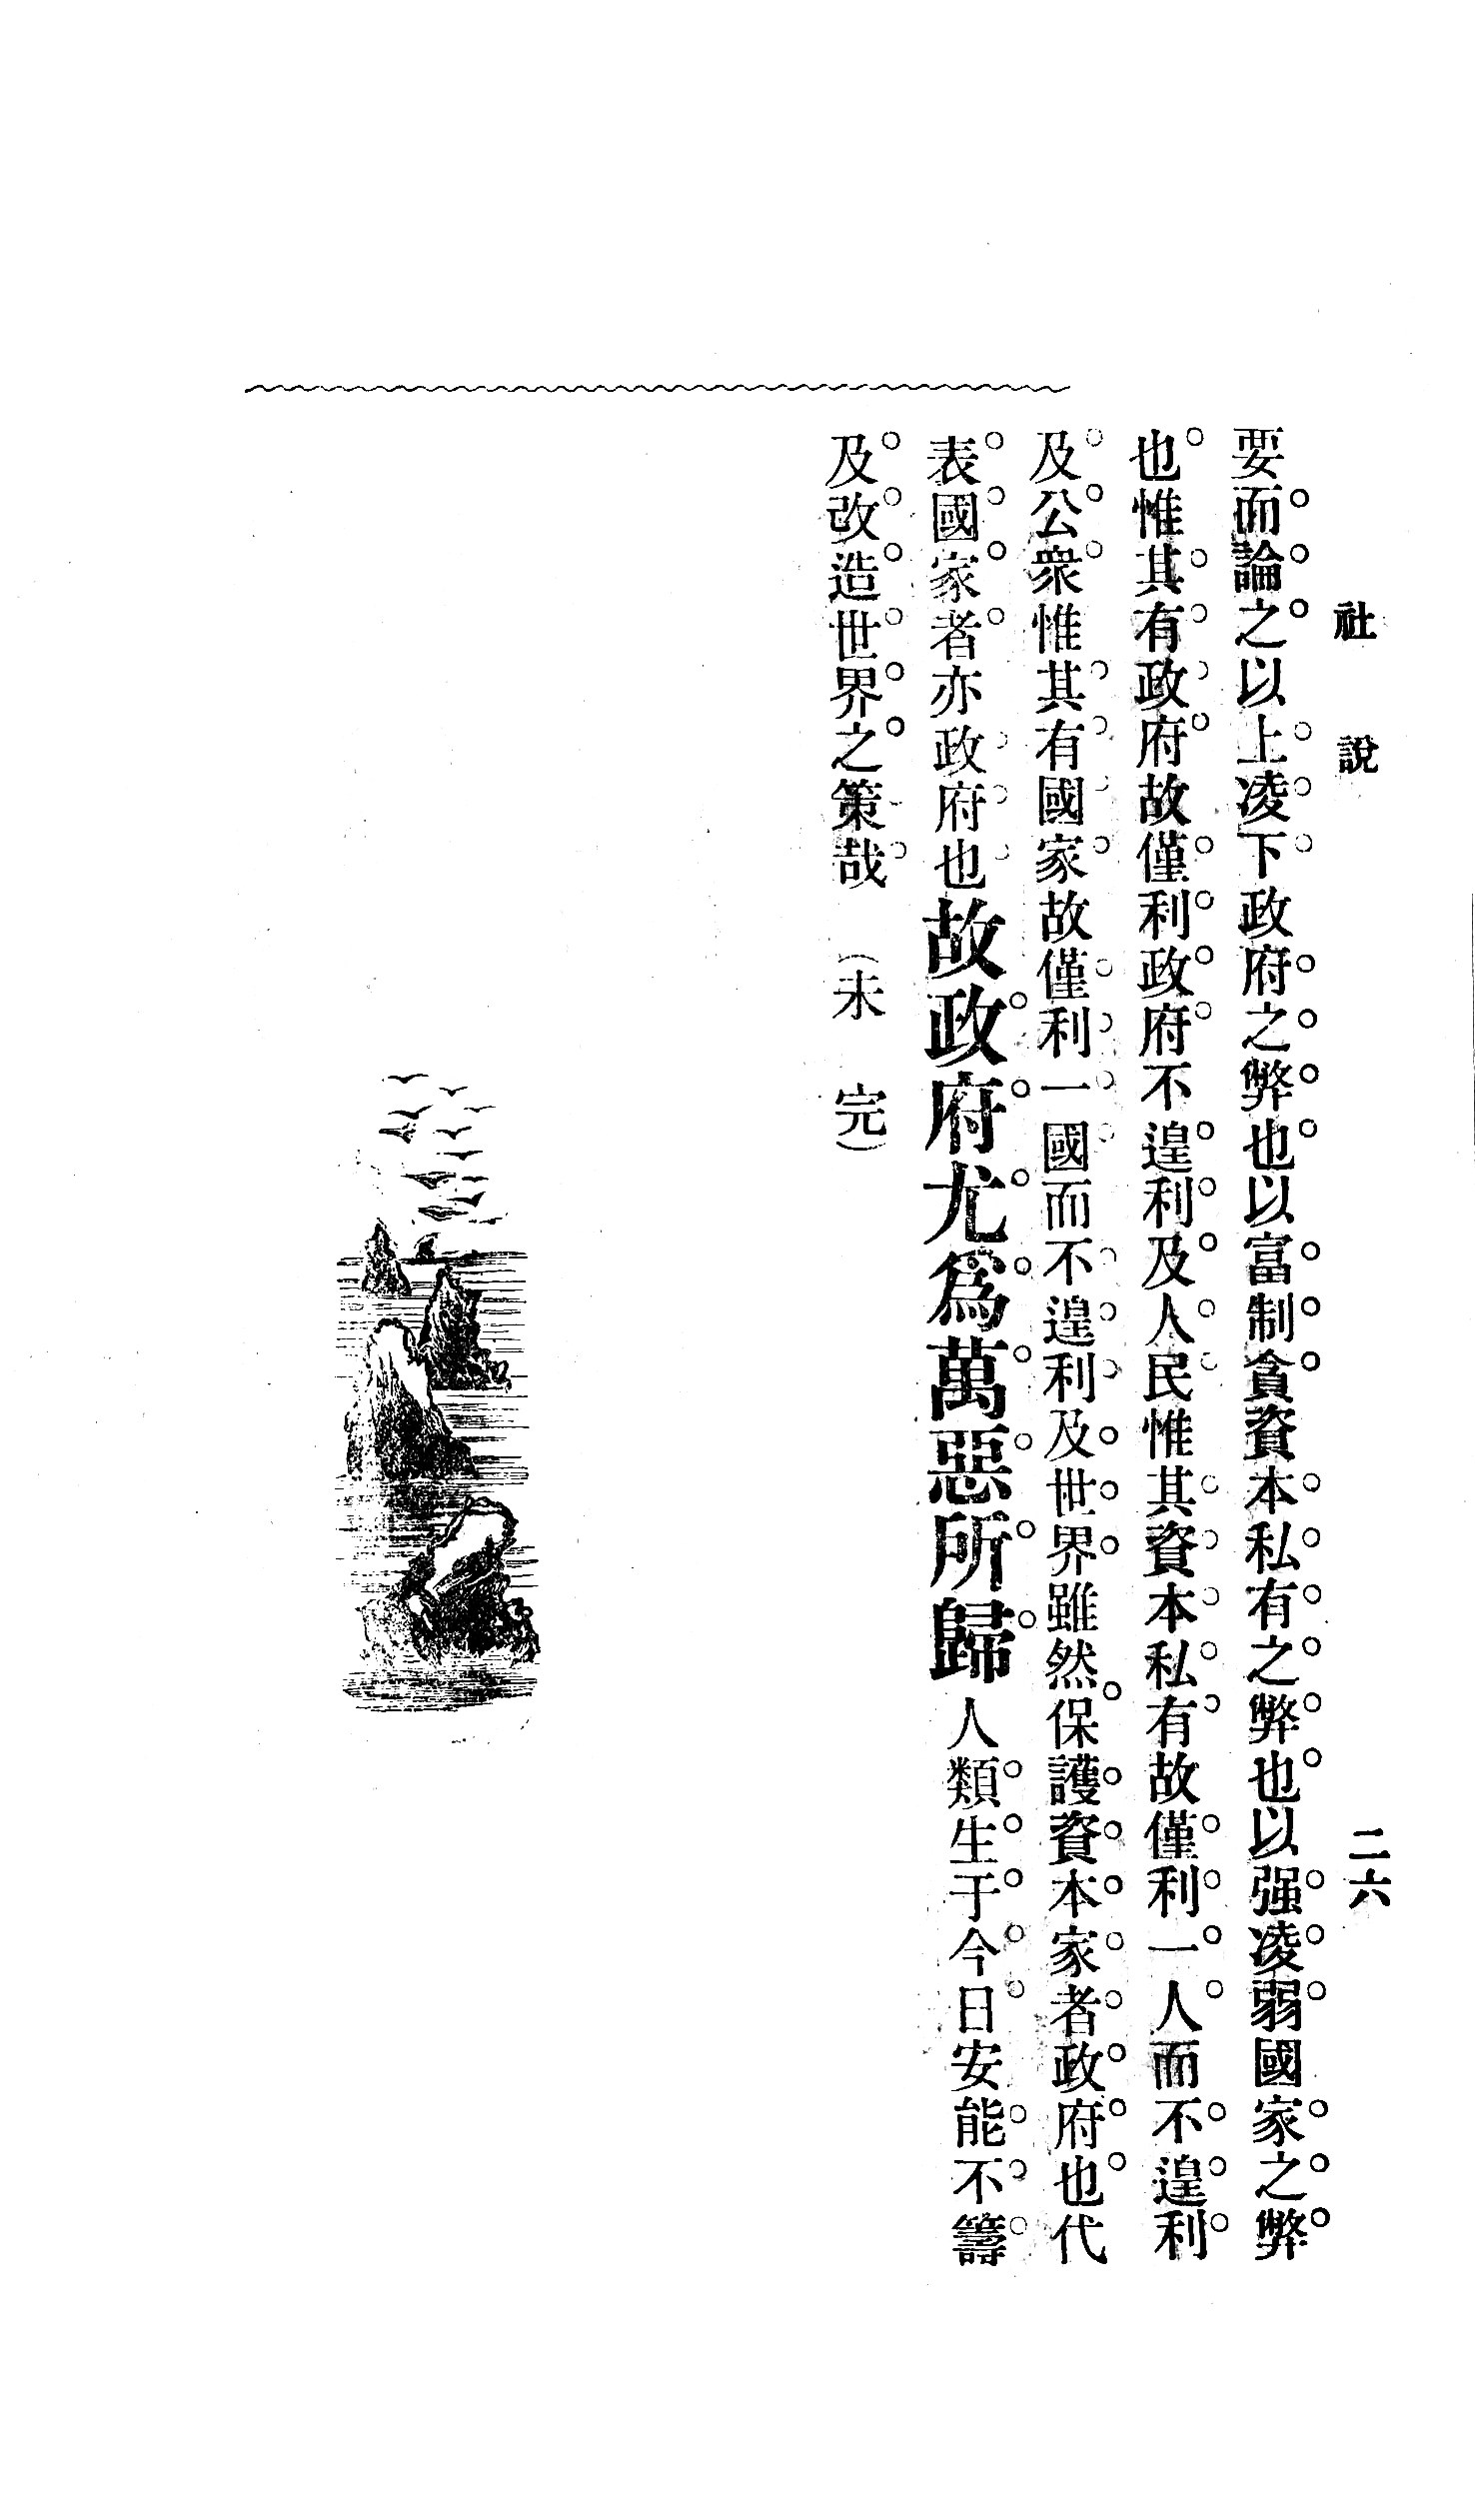 社說
二六
要而論之以上凌下政府之弊也以富制貧資本私有之弊也以强凌弱國家之弊
也惟其有政府故僅利政府不遑利及人民惟其資本私有故僅利一人而不遑利
及公衆惟其有國家故僅利一國而不遑利及世界雖然保護資本家者政府也代
表國家者亦政府也故政府尤爲萬惡所歸人類生于今日安能不籌
及改造世界之策哉（未完）